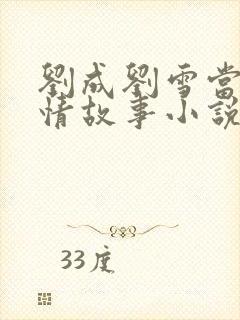 劉成劉雪當
情故事小說
33度